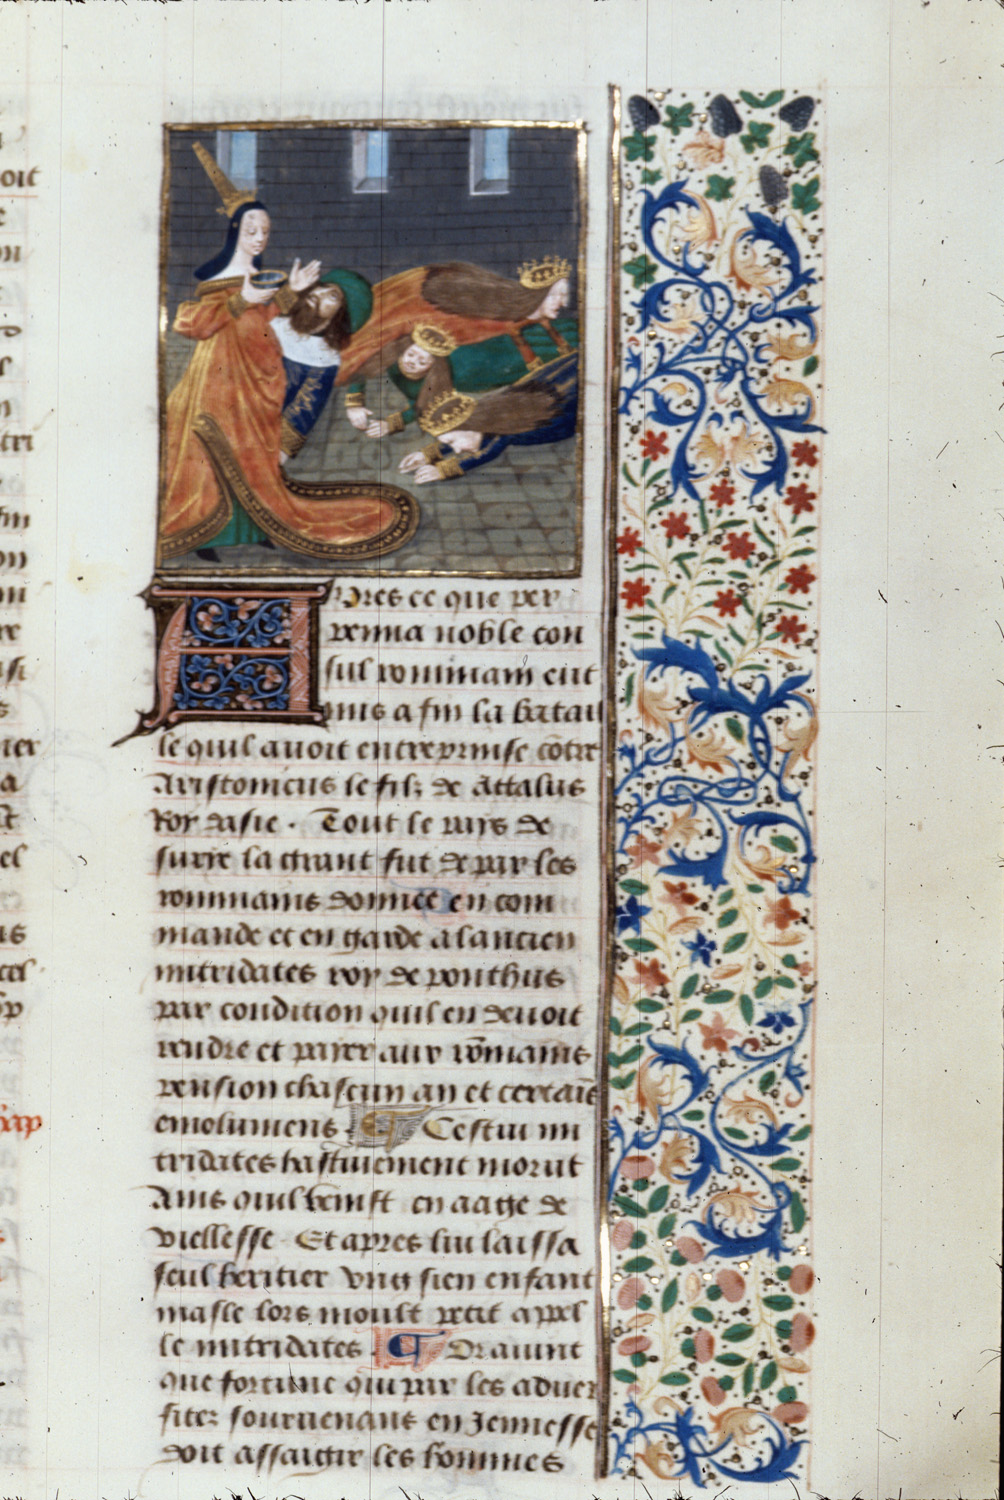 Apres ce que per
penna noble con
sul rommain eut
mis a fin la batail
le quil auoit entreprinse cōtre
Aristonicus le filz de Attalus
Roy dasie. Tout le pays de
surie la grant fut de par les
rommains donnee en com
mande et en garde a lancien
mitridates roy de ponthus
par condition quil en deuoit
rendre et paier aux rōmains
pension chascun an et certaīs
emolumens. Cestui mi
tridates hastiuement morut
Ains quil venist en aage de
viellesse. Et apres lui laissa
seul heritier vng sien enfant
masle lors moult petit appel
le mitridates. Or aduint
que fortune qui par les aduer
sitez souruenans en Jennesse
doit assaigir les hommes